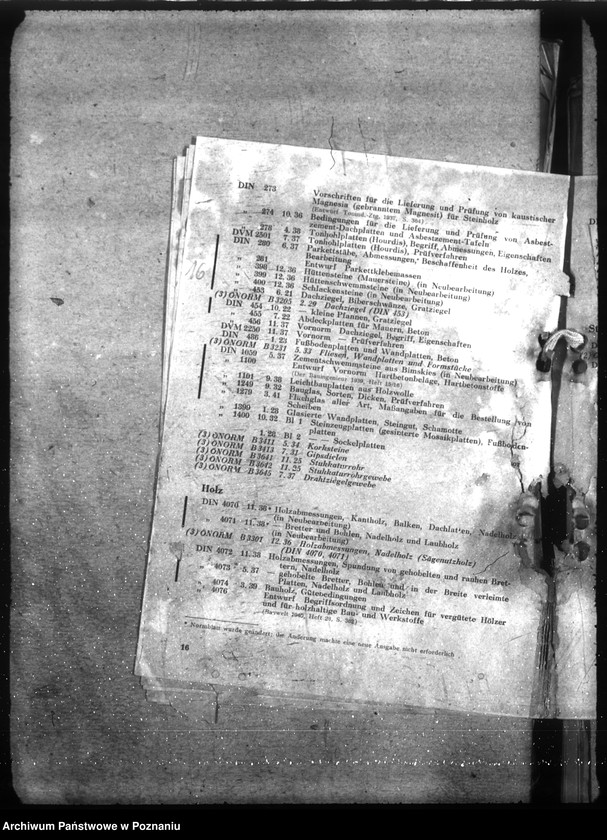 DIN 273 Vorschriften für die Lieferung und Prüfung von kaustischer
Magnesia (gebranntem Magnesit) für Steinholz
(Entwurf Tonind.-Ztg. 1937, S. 364)
" 274 10.36 Bedingungen für die Lieferung und Prüfung von Asbest-
zement-Dachplatten und Asbestzement-Tafeln
" 278 4.38 Tonhohlplatten (Hourdis), Begriff, Abmessungen, Eigenschaften
DVM 2501 7.37 Tonhohlplatten (Hourdis), Prüfverfahren
DIN 280 6.37 Parkettstäbe, Abmessungen, Beschaffenheit des Holzes,
Bearbeitung
" 281 Entwurf Parkettklebemassen
16
" 398 12.36 Hüttensteine (Mauersteine) (in Neubearbeitung)
" 399 12.36 Hüttenschwemmsteine (in Neubearbeitung)
" 400 12.36 Schlackensteine (in Neubearbeitung)
" 453 6.21 Dachziegel, Biberschwänze, Gratziegel
(3) ÖNORM B 3205 2.29 Dachziegel (DIN 453)
DIN 454 10.22 — kleine Pfannen, Gratziegel
" 455 7.22 Abdeckplatten für Mauern, Beton
" 456 11.37 Vornorm Dachziegel, Begriff, Eigenschaften
DVM 2250 11.37 Vornorm — Prüfverfahren
DIN 486 1.23 Fußbodenplatten und Wandplatten, Beton
(3) ÖNORM B 3231 5.33 Fliesen, Wandplatten und Formstücke
DIN 1059 5.37 Zementschwemmsteine aus Bimskies (in Neubearbeitung)
" 1100 Entwurf Vornorm Hartbetonbeläge, Hartbetonstoffe
(Der Bauingenieur 1939, Heft 15/16)
" 1101 9.38 Leichtbauplatten aus Holzwolle
" 1249 9.32 Bauglas, Sorten, Dicken, Prüfverfahren
" 1279 3.41 Flachglas aller Art, Maßangaben für die Bestellung von
Scheiben
" 1399 1.28 Glasierte Wandplatten, Steingut, Schamotte
" 1400 10.32 Bl 1 Steinzeugplatten (gesinterte Mosaikplatten), Fußboden-
platten
1.28 Bl 2 — — Sockelplatten
(3) ÖNORM B 3411 5.34 Korksteine
(3) ÖNORM B 3413 7.31 Gipsdielen
(3) ÖNORM B 3641 11.25 Stukkaturrohr
(3) ÖNORM B 3642 11.25 Stukkaturrohrgewebe
(3) ÖNORM B 3645 7.37 Drahtziegelgewebe
Holz
DIN 4070 11.38* Holzabmessungen, Kantholz, Balken, Dachlatten, Nadelholz
(in Neubearbeitung)
" 4071 11.38* — Bretter und Bohlen, Nadelholz und Laubholz
(in Neubearbeitung)
(3) ÖNORM B 3301 12.36 Holzabmessungen, Nadelholz (Sägenutzholz)
(DIN 4070, 4071)
DIN 4072 11.38 Holzabmessungen, Spundung von gehobelten und rauhen Bret-
tern, Nadelholz
" 4073 5.37 gehobelte Bretter, Bohlen und in der Breite verleimte
Platten, Nadelholz und Laubholz
" 4074 3.39 Bauholz, Gütebedingungen
" 4076 Entwurf Begriffsordnung und Zeichen für vergütete Hölzer
und für holzhaltige Bau- und Werkstoffe
* Normblatt wurde geändert; die Änderung machte eine neue Ausgabe nicht erforderlich
16
Archiwum Państwowe w Poznaniu